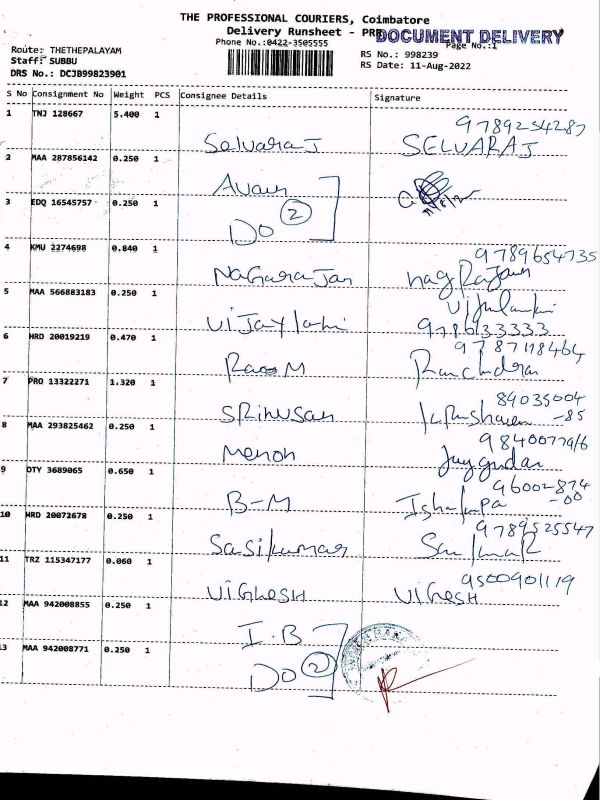 THE PROFESSIONAL COURIERS, Coimbatore
Delivery Runsheet - PRE
DOCUMENT DELIVERY
Phone No.:0422-3505555
Page No.:1
Route: THETHEPALAYAM
Staff: SUBBU
DRS No.: DCJB99823901
RS No.: 998239
RS Date: 11-Aug-2022
S No Consignment No Weight PCS Consignee Details Signature
1 TNJ 128667 5.400 1
9789254287
Selvaraj SELVARAJ
2 MAA 287856142 0.250 1
3 EDQ 16545757 0.250 1
Do 2
4 KMU 2274698 0.840 1
9789654735
Nagarajan
5 MAA 566883183 0.250 1
6 HRD 20019219 0.470 1
9787118464
7 PRO 13322271 1.320 1
84035004
-85
8 MAA 293825462 0.250 1
Menon
9 DTY 3689065 0.650 1
96002874
-00
B-M
10 HRD 20072678 0.250 1
9789525547
Sasikumar
11 TRZ 115347177 0.060 1
9500901119
VIGHESH VIGHESH
12 MAA 942008855 0.250 1
I.B
13 MAA 942008771 0.250 1
Do 2